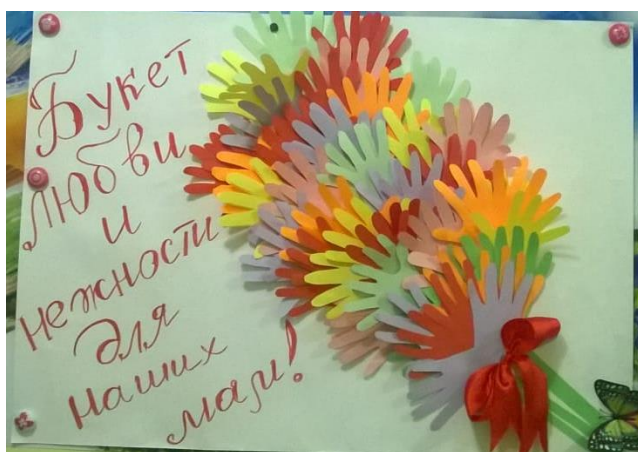 Букет
любви
и
нежности
для
наших
мам!